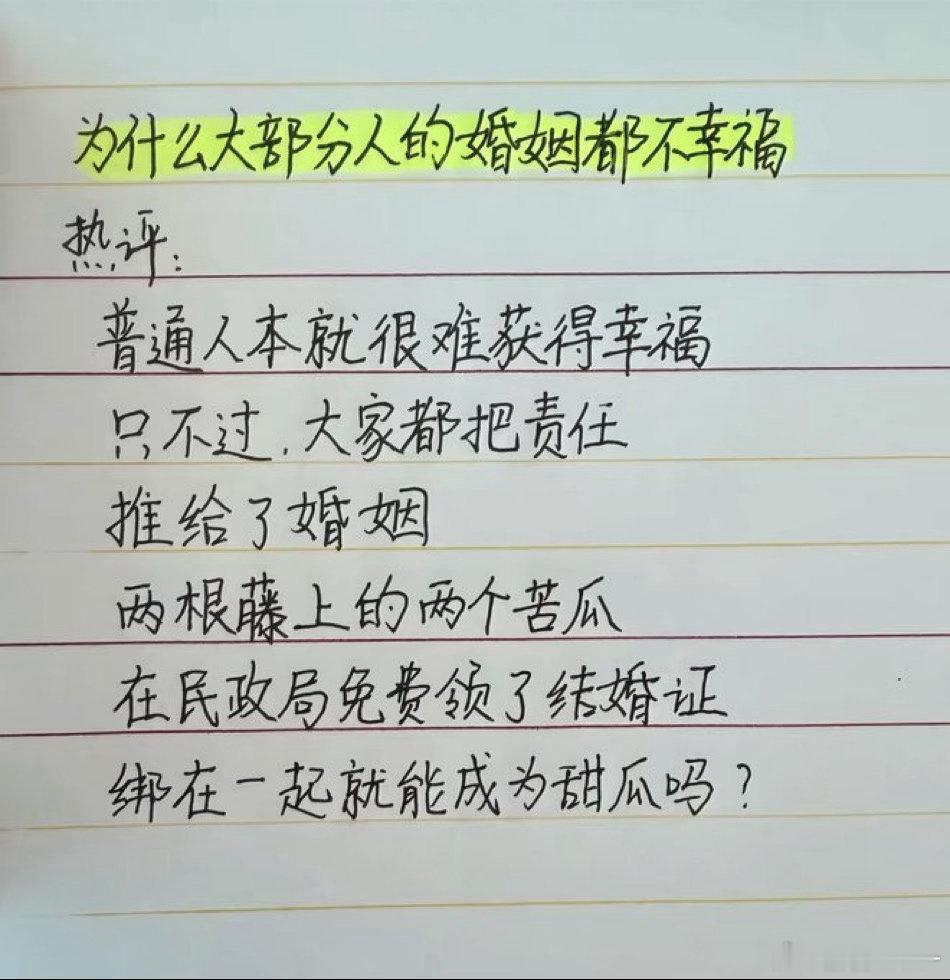 为什么大部分人的婚姻都不幸福
热评:
普通人本就很难获得幸福
只不过,大家都把责任
推给了婚姻
两根藤上的两个苦瓜
在民政局免费领了结婚证
绑在一起就能成为甜瓜吗?